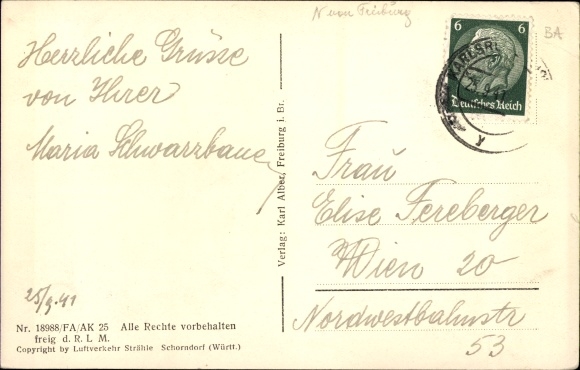 N von Freiburg
BA
6 6
Deutsches Reich
KARLSR
y
Herrliche Grüsse
von Ihrer
Maria Schwarzbauer
25/9.41
Nr. 18988/FA/AK 25 Alle Rechte vorbehalten
freig d. R. L. M.
Copyright by Luftverkehr Strähle Schorndorf (Württ.)
Verlag: Karl Alber, Freiburg i. Br.
Frau
Elise Fereberger
Wien 20
Nordwestbahnstr
53